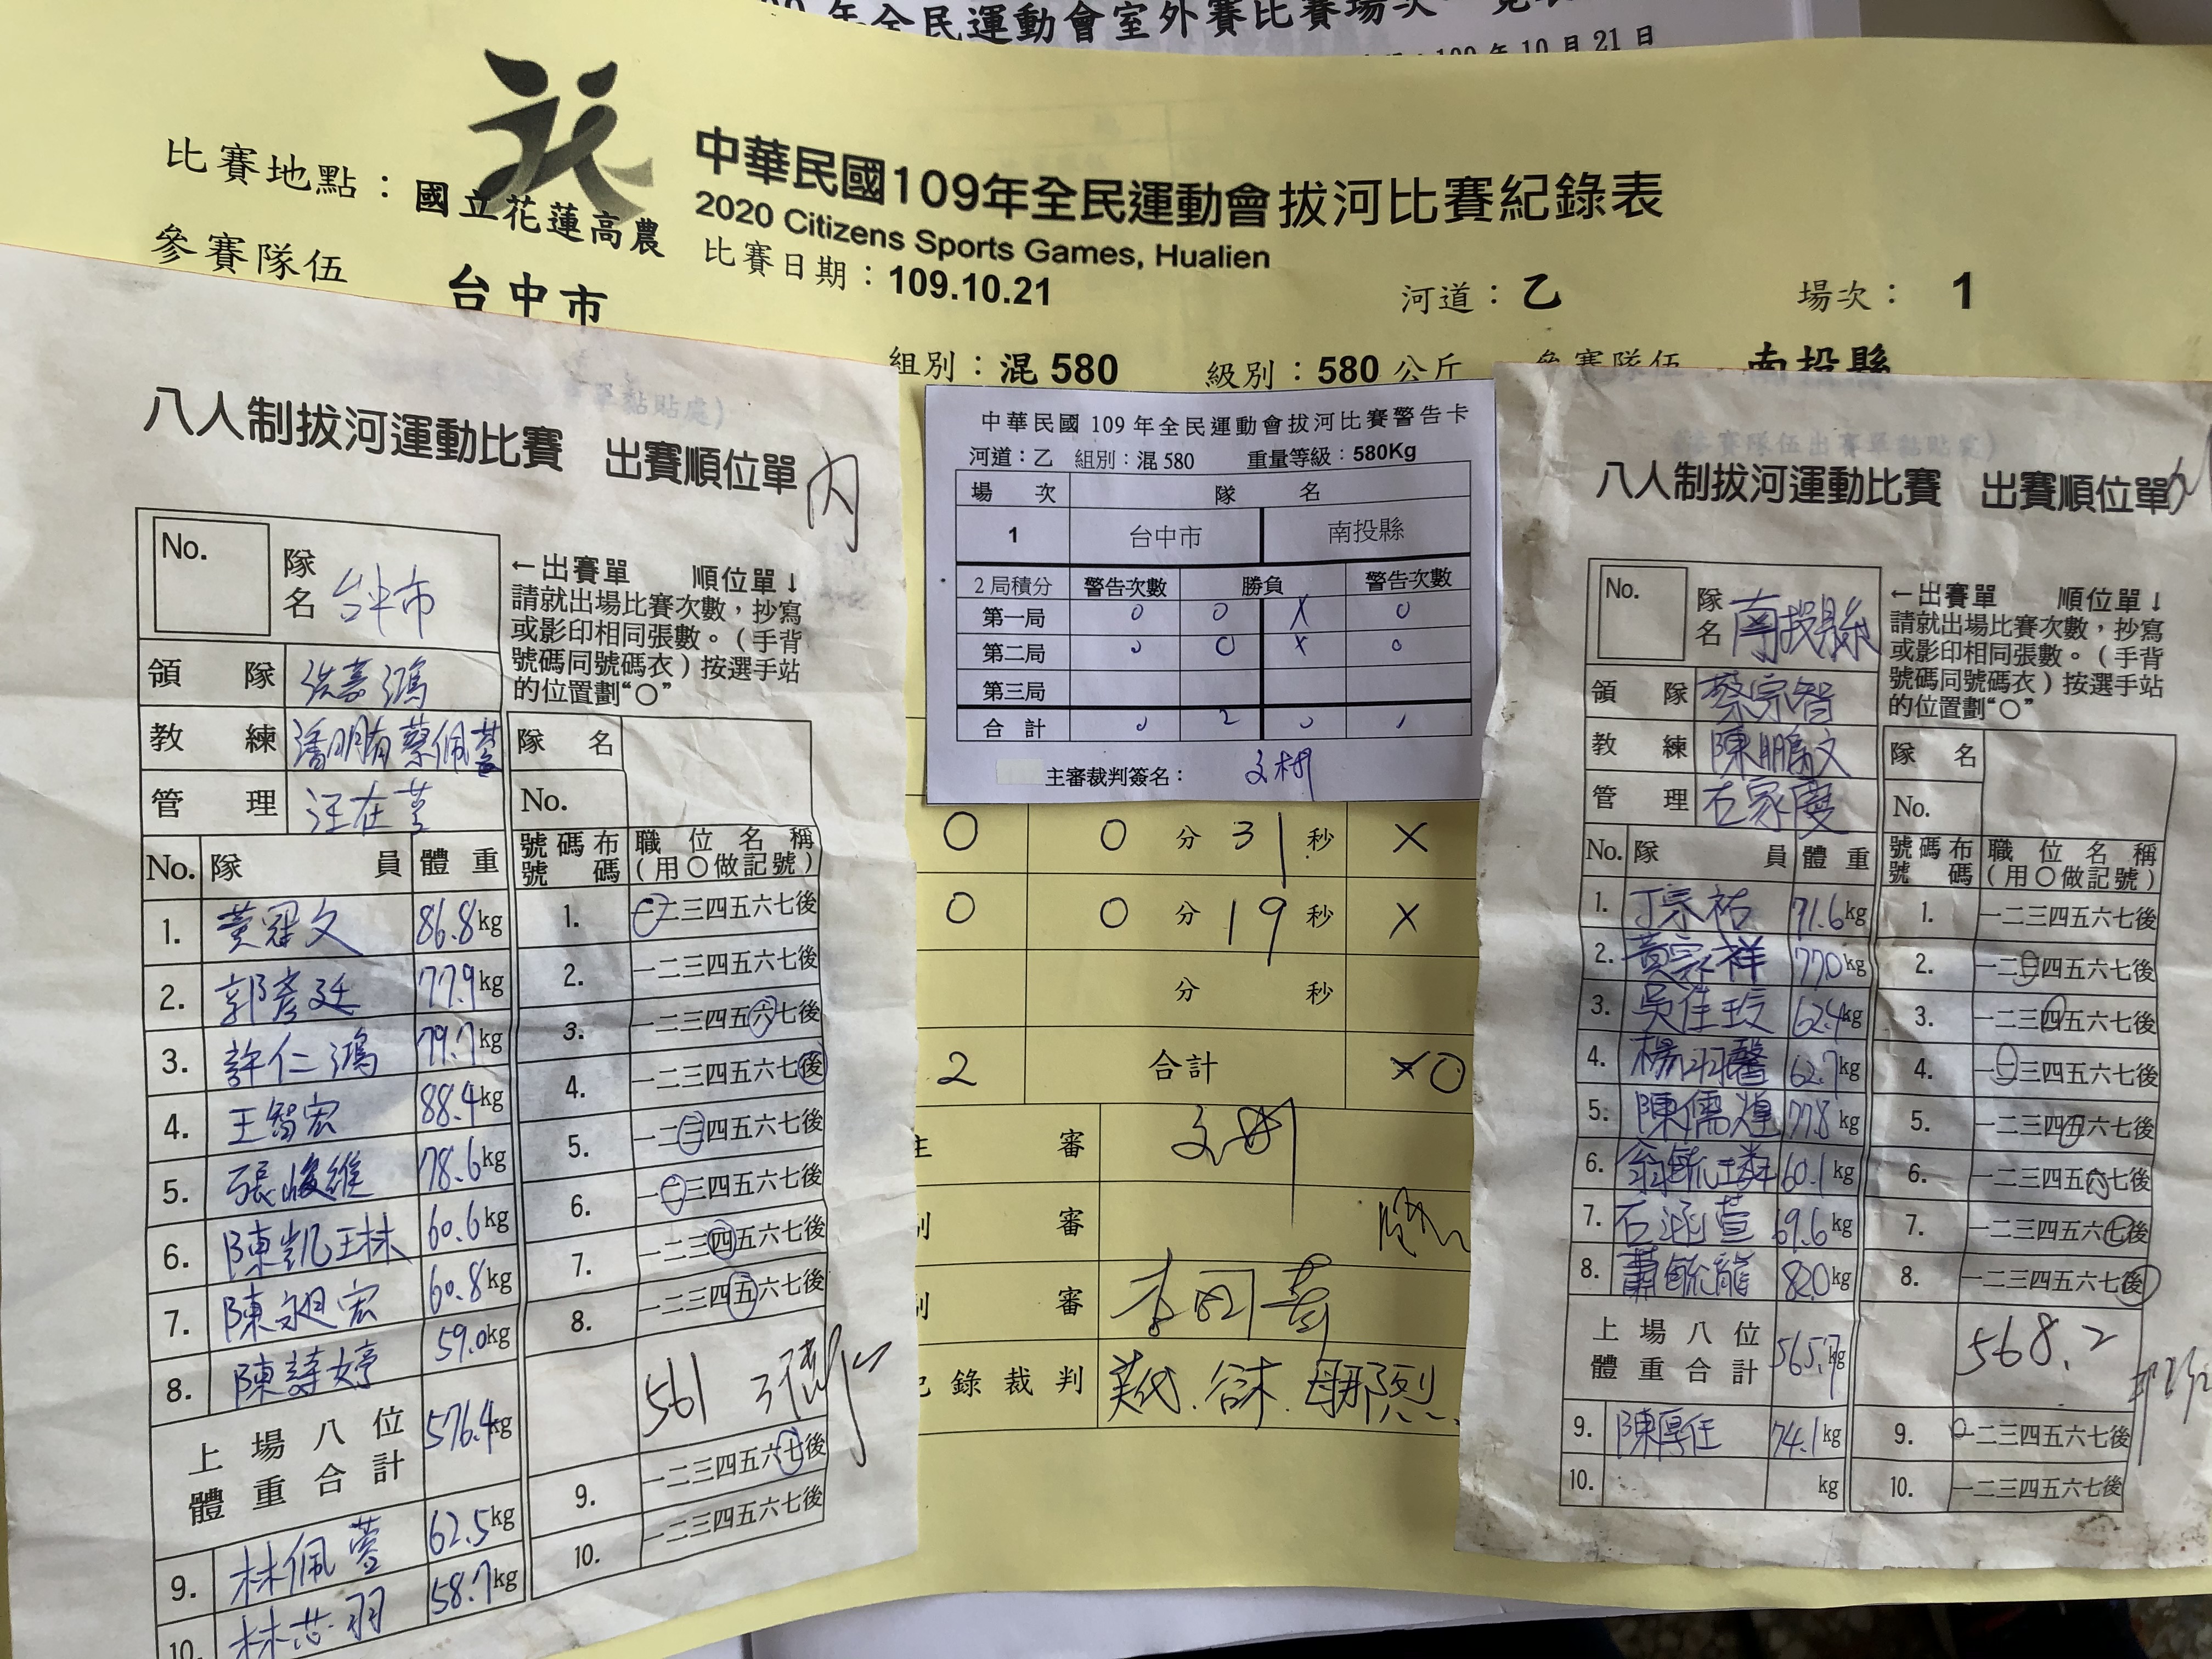 年全民運動會室外賽比賽場次一覽表
109 年 10 月 21 日
中華民國109年全民運動會拔河比賽紀錄表
2020 Citizens Sports Games, Hualien
比賽地點：國立花蓮高農
比賽日期：109.10.21
河道：乙
場次：1
參賽隊伍 台中市
組別：混 580
級別：580 公斤
參賽隊伍 南投縣
八人制拔河運動比賽 出賽順位單
內
No.
隊名 台中市
←出賽單 順位單↓
請就出場比賽次數，抄寫
或影印相同張數。（手背
號碼同號碼衣）按選手站
的位置劃“○”
領隊 洪嘉鴻
教練 潘明有 蔡佩萱
管理 汪在莒
隊名
No.
No. 隊員 體重
號碼布號碼 職位名稱（用○做記號）
1. 黃冠文 86.8kg 1. 一二三四五六七後
2. 郭彥廷 77.9kg 2. 一二三四五六七後
3. 許仁鴻 79.7kg 3. 一二三四五六七後
4. 王智宏 88.4kg 4. 一二三四五六七後
5. 張峻維 78.6kg 5. 一二三四五六七後
6. 陳凱琳 60.6kg 6. 一二三四五六七後
7. 陳昶宏 60.8kg 7. 一二三四五六七後
8. 陳詩婷 59.0kg 8. 一二三四五六七後
上場八位體重合計 576.4kg 561
9. 林佩萱 62.5kg 9. 一二三四五六七後
10. 林芯羽 58.7kg 10. 一二三四五六七後
中華民國 109 年全民運動會拔河比賽警告卡
河道：乙 組別：混 580 重量等級：580Kg
場次 隊名
1 台中市 南投縣
2 局積分 警告次數 勝負 警告次數
第一局 0 0 X 0
第二局 0 0 X 0
第三局
合計 0 2 0
主審裁判簽名：文樹
0 0 分 31 秒 X
0 0 分 19 秒 X
分 秒
2 合計 0
主審
審
審
記錄裁判
八人制拔河運動比賽 出賽順位單
No.
隊名 南投縣
←出賽單 順位單↓
請就出場比賽次數，抄寫
或影印相同張數。（手背
號碼同號碼衣）按選手站
的位置劃“○”
領隊 蔡宗智
教練 陳鵬文
管理 石家慶
隊名
No.
No. 隊員 體重
號碼布號碼 職位名稱（用○做記號）
1. 丁宗祐 71.6kg 1. 一二三四五六七後
2. 黃宗祥 77.0kg 2. 一二三四五六七後
3. 吳佳玟 62.4kg 3. 一二三四五六七後
4. 楊羽馨 62.7kg 4. 一二三四五六七後
5. 陳儒煌 77.8kg 5. 一二三四五六七後
6. 翁毓璘 60.1kg 6. 一二三四五六七後
7. 石涵萱 69.6kg 7. 一二三四五六七後
8. 蕭毓龍 82.0kg 8. 一二三四五六七後
上場八位體重合計 565.7kg 568.2
9. 陳厚任 74.1kg 9. 一二三四五六七後
10. kg 10. 一二三四五六七後